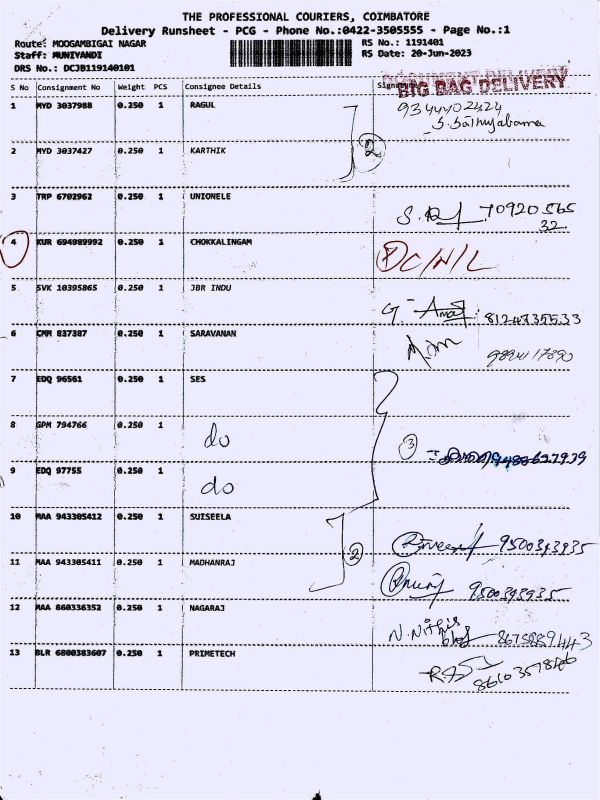 THE PROFESSIONAL COURIERS, COIMBATORE
Delivery Runsheet - PCG - Phone No.:0422-3505555 - Page No.:1
Route: MOOGAMBIGAI NAGAR RS No.: 1191401
Staff: MUNIYANDI RS Date: 20-Jun-2023
DRS No.: DCJB119140101
BIG BAG DELIVERY
S No Consignment No Weight PCS Consignee Details
1 MYD 3037988 0.250 1 RAGUL 9344402424
2
2 MYD 3037427 0.250 1 KARTHIK
3 TRP 6702962 0.250 1 UNIONELE 70920 565
32
4 KUR 694989992 0.250 1 CHOKKALINGAM D/C/N/L
5 SVK 10395865 0.250 1 JBR INDU G. 8124735533
6 CMM 837387 0.250 1 SARAVANAN
7 EDQ 96561 0.250 1 SES
8 GPM 794766 0.250 1 do 3
9 EDQ 97755 0.250 1 do
10 MAA 943305412 0.250 1 SUISEELA 9500393935
2
11 MAA 943305411 0.250 1 MADHANRAJ 9500393935
12 MAA 860336352 0.250 1 NAGARAJ N. Nithis
13 BLR 6800383607 0.250 1 PRIMETECH